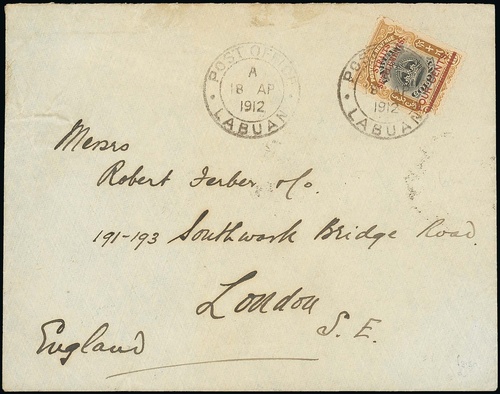 POST OFFICE
A
18 AP
1912
LABUAN
POST
18
1912
LABUAN
FOUR CENTS
Messrs
Robert Ferber
191-193 Southwark Bridge Road.
London
S. E.
England